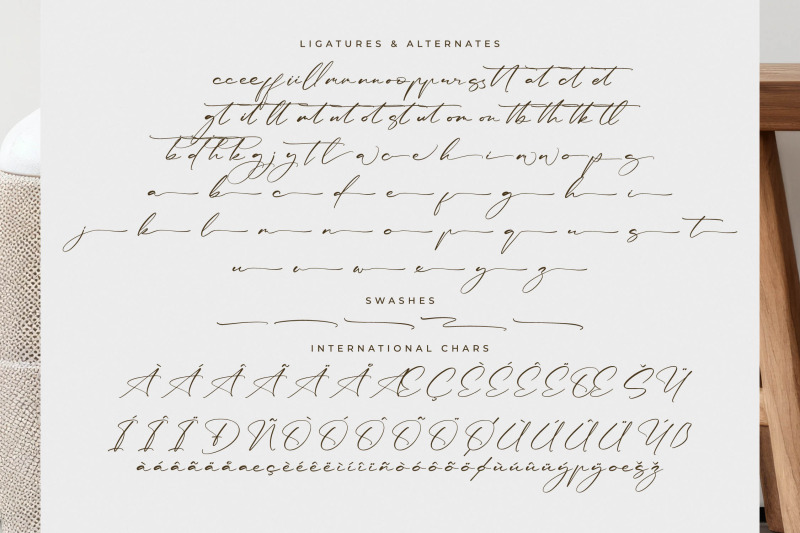 LIGATURES & ALTERNATES
cc ee ff ii ll mm nn oo pp ur gs tt at ct et
gt it lt nt ut ot st ut om on tb th tk tl
b d h k g j y t l
a b c d e f g h i
j k l m n o p q u s t
u v w e y z
SWASHES
INTERNATIONAL CHARS
À Á Â Ã Ä Å Æ Ç È É Ê Ë Œ Š Ü
Í Î Ï Ð Ñ Ò Ó Ô Õ Ő Ö Ø Ù Ú Û Ü Ý ß
à á â ã ä å æ ç è é ê ë ì í î ï ñ ò ó ô õ ö ø ù ú û ü ý þ ÿ œ š ž